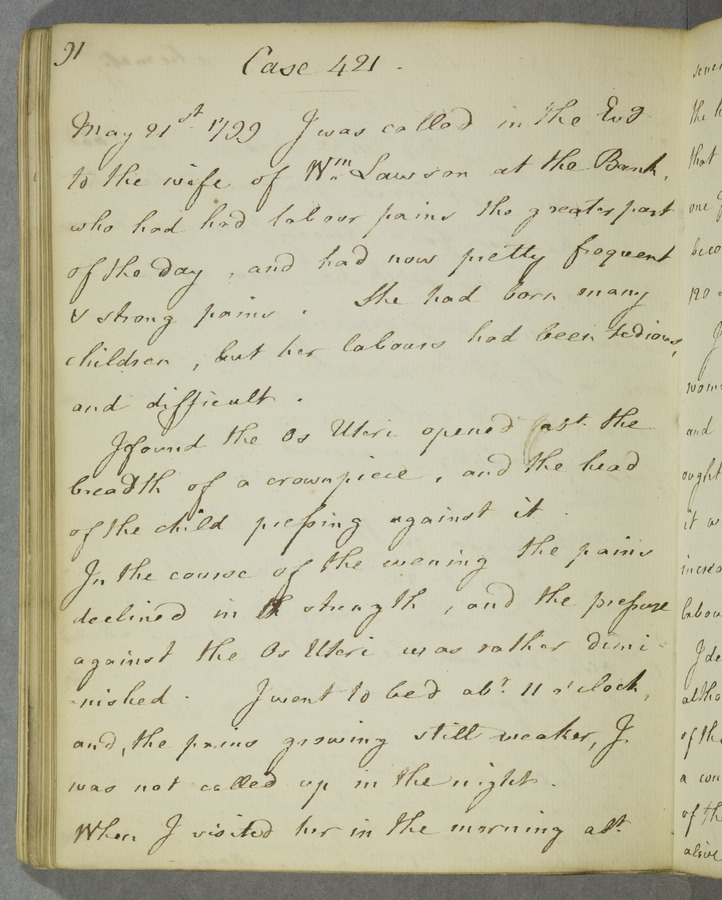 91
Case 421.
May 21st 1799 I was called in the Evg
to the wife of Wm Lawson at the Bank,
who had had labour pains the greater part
of the day, and had now pretty frequent
& strong pains. She had born many
children, but her labours had been tedious,
and difficult.
I found the Os Uteri opened abt. the
breadth of a crownpiece, and the head
of the child pressing against it.
In the course of the evening the pains
declined in strength, and the pressure
against the Os Uteri was rather dimi-
-nished. I went to bed abt. 11 o'clock,
and, the pains growing still weaker, I
was not called up in the night.
When I visited her in the morning abt.
the
that
one
120
and
ought
it
of the
a
of the
alive